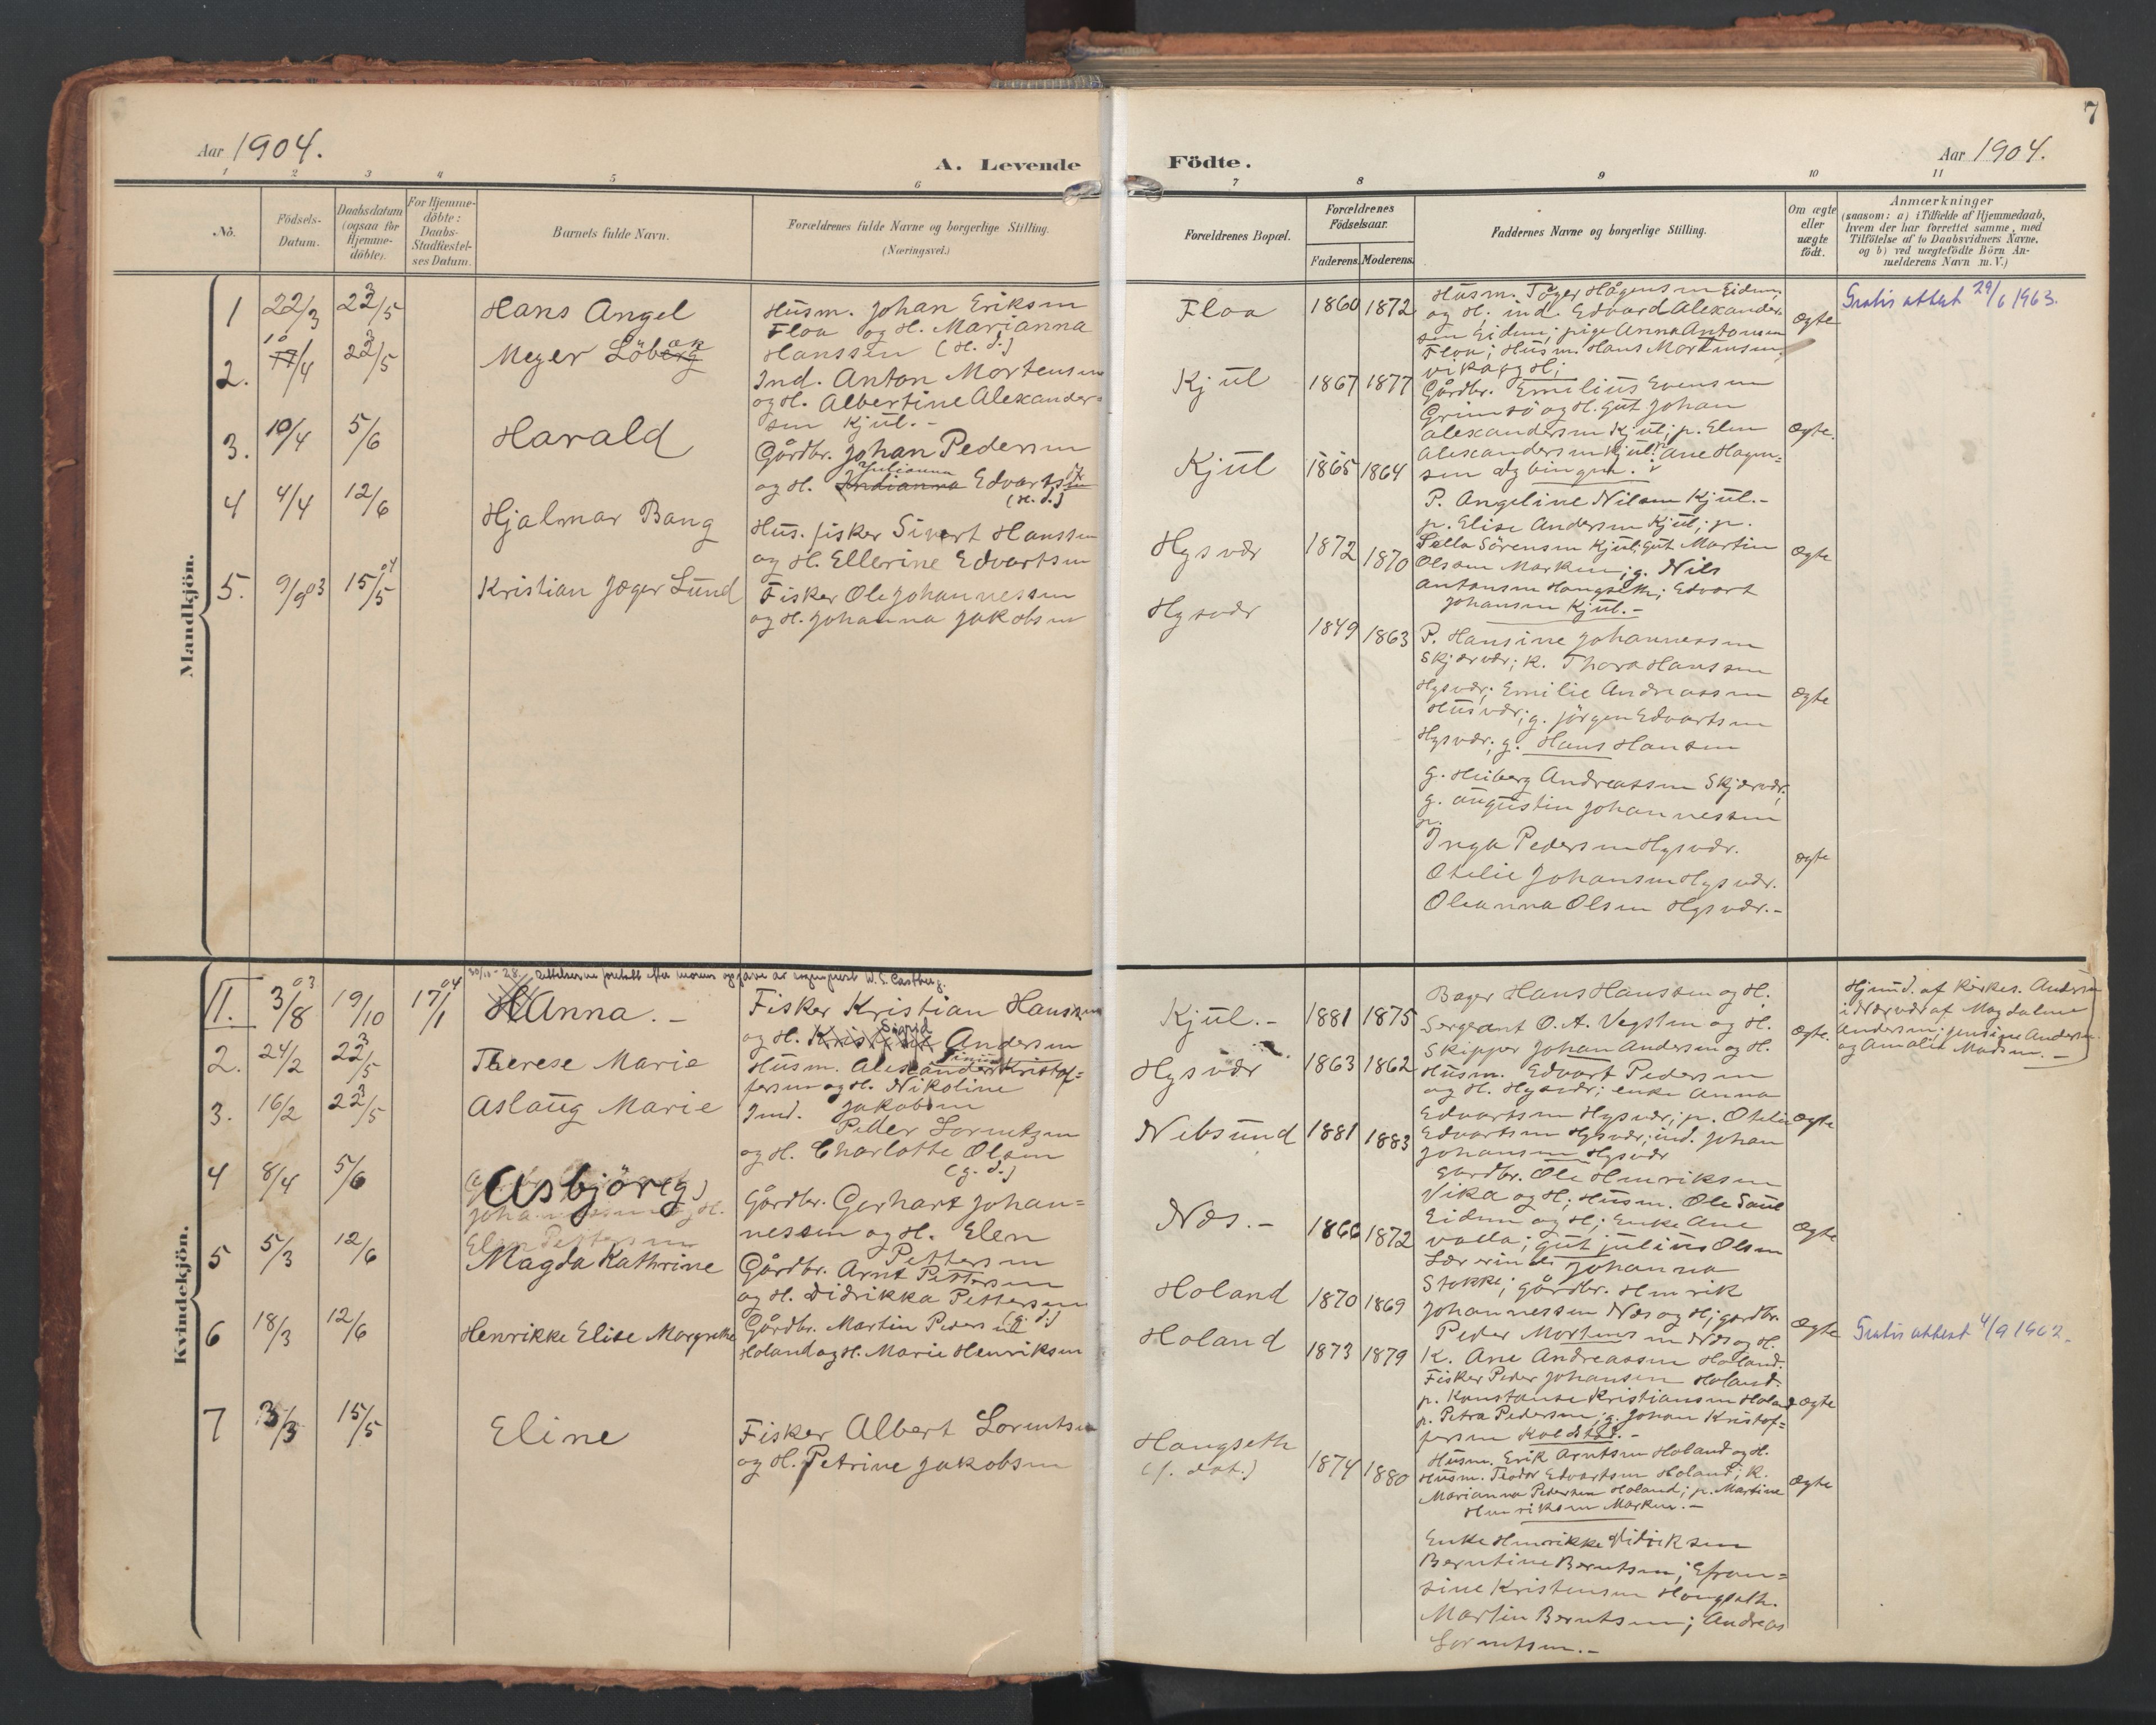 7
Aar 1904.
A. Levende
Födte.
Aar 1904.
1 2 3 4 5 6
7 8 9 10 11
No.
Födsels-
Datum.
Daabsdatum
(ogsaa for
Hjemme-
döbte).
For Hjemme-
döbte:
Daabs-
Stadfæstel-
ses Datum.
Barnets fulde Navn.
Forældrenes fulde Navne og borgerlige Stilling.
(Næringsvei.)
Forældrenes Bopæl.
Forældrenes
Födselsaar.
Faderens. Moderens.
Faddernes Navne og borgerlige Stilling.
Om ægte
eller
uægte
födt.
Anmærkninger
(saasom: a) i Tilfælde af Hjemmedaab,
hvem der har forrettet samme, med
Tilföielse af to Daabsvidners Navne,
og b) ved uægtefödte Börn An-
melderens Navn m. V.)
Mandkjön.
1 22/3 23/5
Hans Angel
Husm. Johan Eriksen
Floa og H. Marianna
Hanssen (H. d.)
Floa
1860 1872
Husm. Töger Hågensen Eidem,
og H. ind. Edvard Alexander-
sen Eidem; pige Anna Antonsen
Floa; Husm. Hans Mortensen,
vika og H;
Ægte
Gratis attest 29/6 1963.
2. 10/4 23/5
Meyer Löb
Ind. Anton Mortensen
og H. Albertine Alexander=
sen Kjul.-
Kjul
1867 1877
Gårdbr. Emilius Evensen
Grimsö og H. gut Johan
Alexandersen Kjul; p. Elen
Alexandersen Kjul; p. Ane Hagen=
sen
Ægte.
3. 10/4 5/6
Harald
Gårdbr. Johan Pedersen
Julianna
og H. Edvarts
(H. d.)
Kjul
1865 1864
P. Angeline Nilsen Kjul.-
p. Elise Andersen Kjul; p.
Sella Sörensen Kjul; gut Martin
Olsen Marken; g. Nils
Antonsen Hongseth; Edvart
Johansen Kjul.-
Ægte
4 4/4 12/6
Hjalmar Bang
Hus. fisker Sivert Hanssen
og H. Ellerine Edvartsen
Hysvær
1872 1870
P. Hansine Johannessen
Skjærvær; K. Thora Hanssen
Hysvær; Emilie Andreassen
Husvær; g. Jörgen Edvartsen
Hysvær; g. Hans Hansen
Ægte
5. 9/9 03 15/5 04
Kristian Jæger Lund
Fisker Ole Johannessen
og H. Johanna Jakobsen
Hysvær
1849 1863
g. Heiberg Andreassen Skjærvær;
g. Augustin Johannessen
p.
Inga Pedersen Hysvær.
Otelie Johansen Hysvær.
Oleanna Olsen Hysvær.-
Ægte
Kvindekjön.
30/10-28. Rettelserne foretatt efter morens opgave av sogneprest W. S. Castberg.
11. 3/8 03 19/10 17/1 04
Anna.-
Fisker Kristian Hanssen
Sigrid
og H. Andersen
Kjul.-
1881 1875
Bager Hans Hanssen og H.
Sergeant O. A. Vegsten og H.
Skipper Johan Andersen og H.
Ægte.
Hjmd. af kirkes. Andersen
i Nærvær af Magdalene
Andersen; Jensine Andersen
og Amalie Madsen.-
2. 24/2 23/5
Therese Marie
Husm. Alexander Kristof=
fersen og H. Nikoline
Jakobsen
Hysvær
1863 1862
Husm. Edvart Pedersen
og H. Hysvær; enke Anna
Edvartsen Hysvær; p. Otelie
Edvartsen Hysvær; ind. Johan
Johansen Hysvær
Ægte
3. 16/2 23/5
Aslaug Marie
Ind. Peder Lorentzen
og H. Charlotte Olsen
(g. d.)
Nibsund
1881 1883
Gårdbr. Ole Henriksen
Vika og H; Husm. Ole Saul
Eidem og H; Enke Ane
valla; gut Julius Olsen
Ægte
4 8/4 5/6
Asbjör(g)
Gårdbr. Gerhart Johan=
nessen og H. Elen
Pettersen
Næs.-
1866 1872
Lærerinde Johanna
Stokke; gårdbr. Henrik
Johannessen Næs og H; gardbr.
Peder Mortensen Næs og H.
Ægte
5 5/3 12/6
Magda Kathrine
Gårdbr. Arnt Pettersen
og H. Didrikka Pettersen
(g. d.)
Holand
1870 1869
K. Ane Andreassen Holand.
Fisker Peder Johansen Holand.
p. Konstanse Kristiansen Holand
p. Petra Pedersen; g. Johan Kristof=
fersen Koldstad.-
Ægte
Gratis attest 4/9 1962.
6 18/3 12/6
Henrikke Elise Margrethe
Gårdbr. Martin Pedersen
Holand og H. Marie Henriksen
Holand
1873 1879
Husm. Erik Arntsen Holand og H.
Husm. Teodor Edvartsen Holand; K.
Marianna Pedersen Holand; p. Martine
Henriksen Marken.-
Ægte
7 3/3 15/5
Eline
Fisker Albert Lorentsen
og H. Petrine Jakobsen
Hongseth
(f. dat.)
1874 1880
Enke Henrikke Didriksen
Berntine Berntsen; Efram=
sine Kristensen Hongseth.
Martin Berntsen; Andreas
Lorentsen.-
Ægte